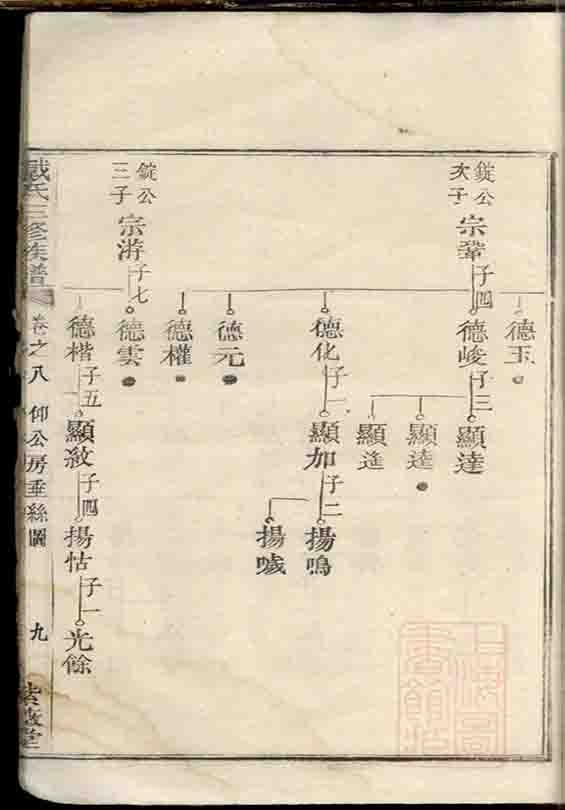 錠公
次子
宗鞏
子四
德玉
德峻
子三
顯達
顯逵
顯遙
德化
子一
顯加
子二
揚鳴
揚喊
德元
德權
錠公
三子
宗游
子七
德雲
德楷
子五
顯敘
子四
揚怙
子一
光餘
戴氏三修族譜
卷之八
仰公房垂絲圖
九